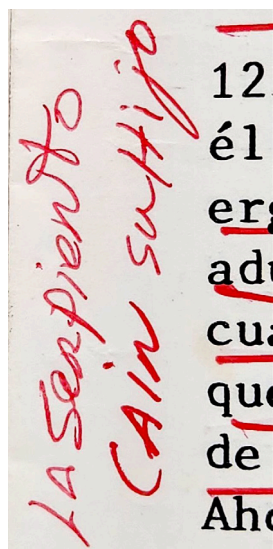 LA Serpiento
CAIN su Hijo
12
él
erg
adu
cua
que
de
Aho